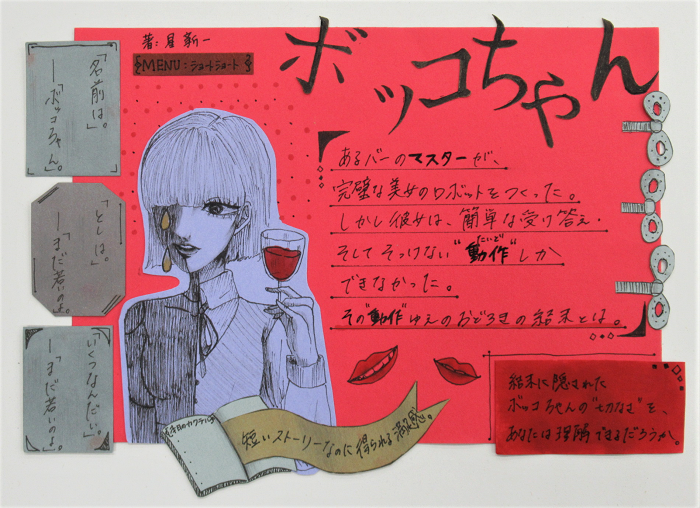 ボッコちゃん
著:星新一
MENU:ショートショート
「名前は。」
―「ボッコちゃん。」
「としは。」
―「まだ若いのよ。」
「いくつなんだい。」
―「まだ若いのよ。」
あるバーのマスターが、
完璧な美女のロボットをつくった。
しかし彼女は、簡単な受け答え・
そしてそっけない“動作”しか
できなかった。
その“動作”ゆえのおどろきの結末とは。
短いストーリーなのに得られる満足感。
結末に隠された
ボッコちゃんの“切なさ”を、
あなたは理解できるだろうか。